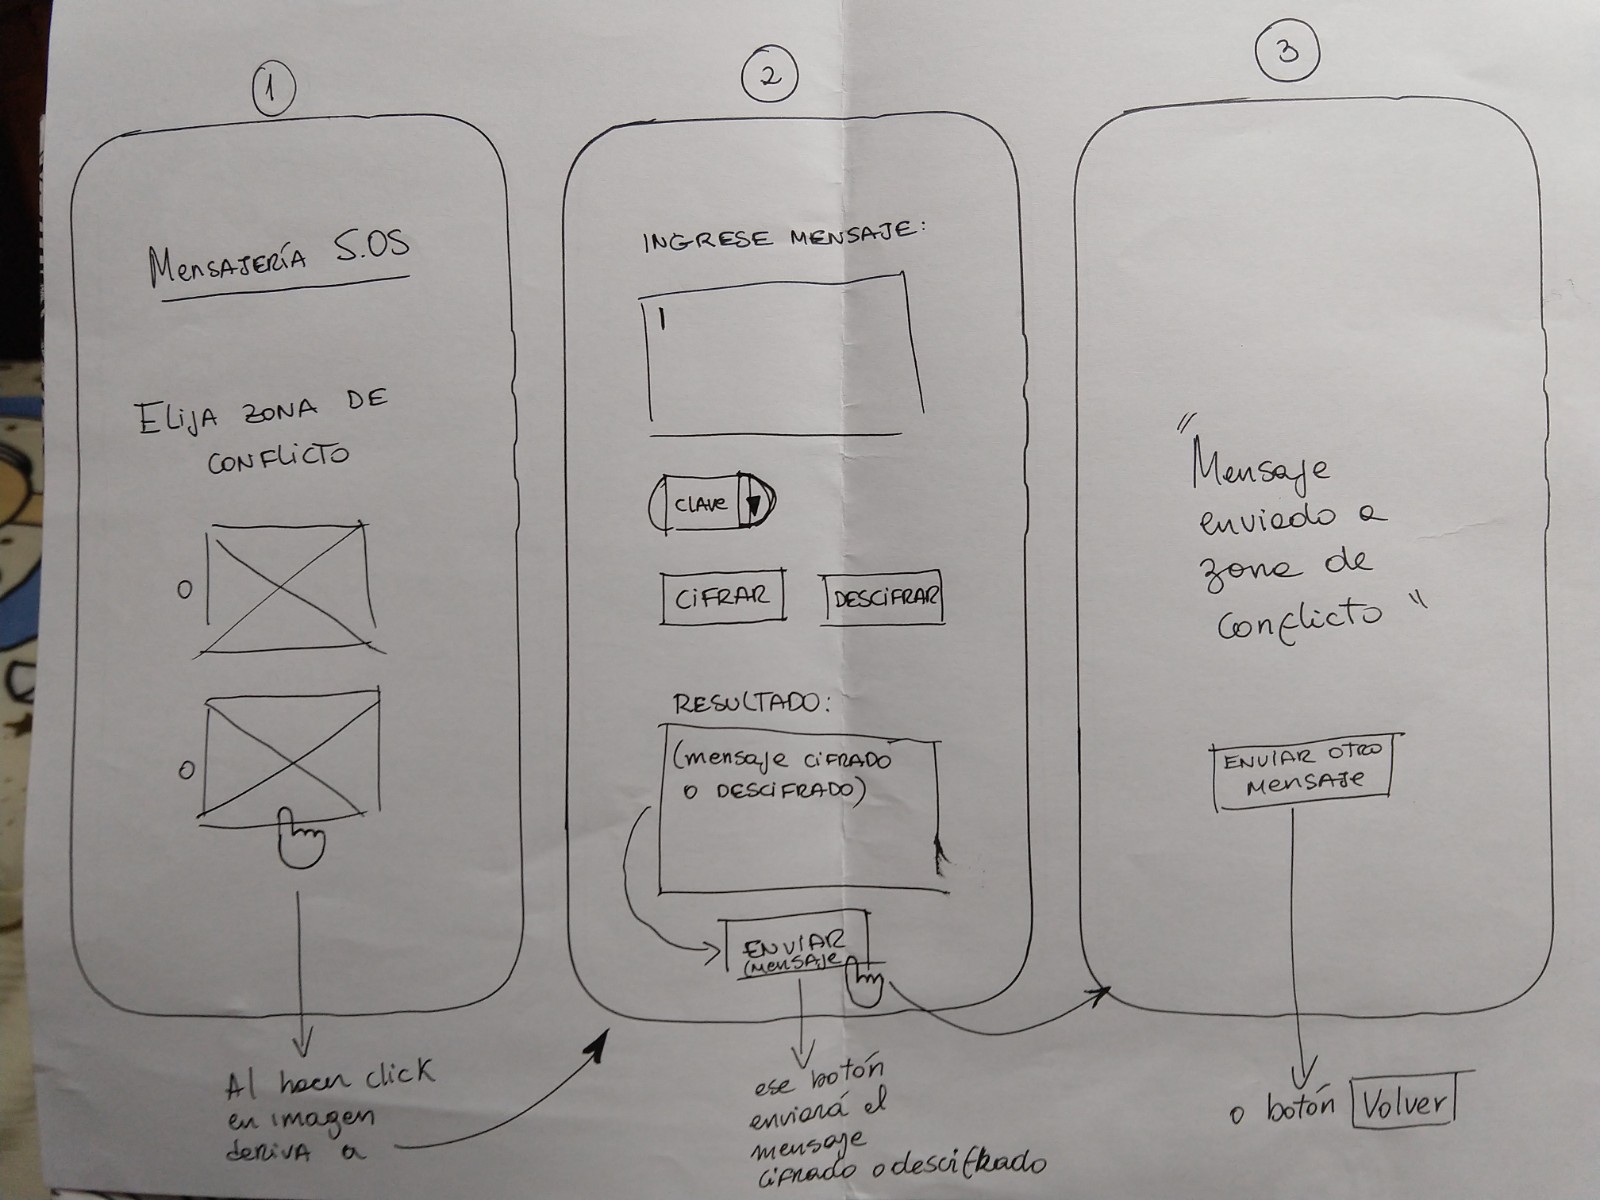 1
Mensajería S.OS
Elija zona de
conflicto
Al hacer click
en imagen
deriva a
2
INGRESE MENSAJE:
CLAVE
CIFRAR
DESCIFRAR
RESULTADO:
(mensaje CIFRADO
O DESCIFRADO)
ENVIAR
(MENSAJE
ese botón
enviará el
mensaje
cifrado o descifrado
3
"Mensaje
enviado a
zona de
conflicto"
ENVIAR OTRO
MENSAJE
o botón Volver